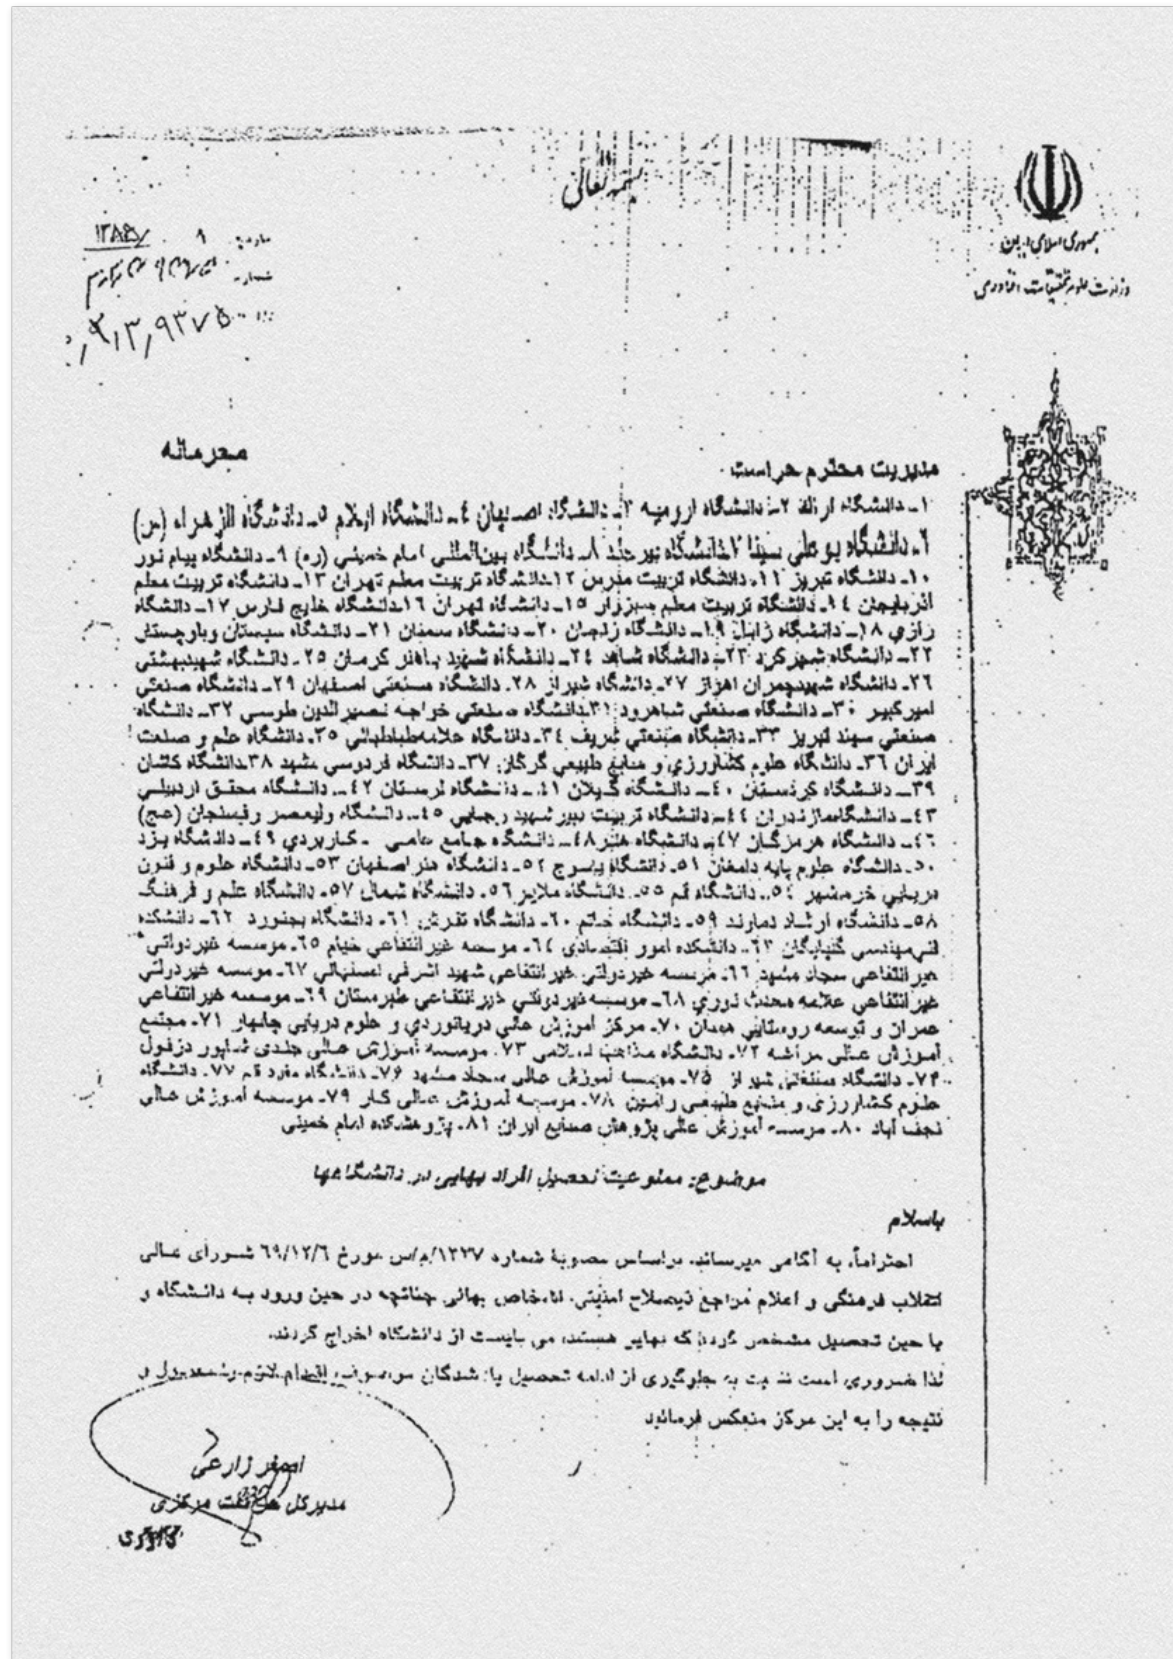 بسمه تعالی
جمهوری اسلامی ایران
وزارت علوم تحقیقات و فناوری
۱۳۸۵/
شماره
محرمانه
مدیریت محترم حراست
۱ـ دانشگاه اراک ۲ـ دانشگاه ارومیه ۳ـ دانشگاه اصفهان ۴ـ دانشگاه ایلام ۵ـ دانشگاه الزهراء (س)
۶ـ دانشگاه بوعلی سینا ۷ـ دانشگاه بیرجند ۸ـ دانشگاه بین‌المللی امام خمینی (ره) ۹ـ دانشگاه پیام نور
۱۰ـ دانشگاه تبریز ۱۱ـ دانشگاه تربیت مدرس ۱۲ـ دانشگاه تربیت معلم تهران ۱۳ـ دانشگاه تربیت معلم
آذربایجان ۱۴ـ دانشگاه تربیت معلم سبزوار ۱۵ـ دانشگاه تهران ۱۶ـ دانشگاه خلیج فارس ۱۷ـ دانشگاه
رازی ۱۸ـ دانشگاه زابل ۱۹ـ دانشگاه زنجان ۲۰ـ دانشگاه سمنان ۲۱ـ دانشگاه سیستان وبلوچستان
۲۲ـ دانشگاه شهرکرد ۲۳ـ دانشگاه شاهد ۲۴ـ دانشگاه شهید باهنر کرمان ۲۵ـ دانشگاه شهیدبهشتی
۲۶ـ دانشگاه شهیدچمران اهواز ۲۷ـ دانشگاه شیراز ۲۸ـ دانشگاه صنعتی اصفهان ۲۹ـ دانشگاه صنعتی
امیرکبیر ۳۰ـ دانشگاه صنعتی شاهرود ۳۱ـ دانشگاه صنعتی خواجه نصیرالدین طوسی ۳۲ـ دانشگاه
صنعتی سهند تبریز ۳۳ـ دانشگاه صنعتی شریف ۳۴ـ دانشگاه علامه‌طباطبائی ۳۵ـ دانشگاه علم و صنعت
ایران ۳۶ـ دانشگاه علوم کشاورزی و منابع طبیعی گرگان ۳۷ـ دانشگاه فردوسی مشهد ۳۸ـ دانشگاه کاشان
۳۹ـ دانشگاه کردستان ۴۰ـ دانشگاه گیلان ۴۱ـ دانشگاه لرستان ۴۲ـ دانشگاه محقق اردبیلی
۴۳ـ دانشگاه مازندران ۴۴ـ دانشگاه تربیت دبیر شهید رجایی ۴۵ـ دانشگاه ولیعصر رفسنجان (عج)
۴۶ـ دانشگاه هرمزگان ۴۷ـ دانشگاه هنر ۴۸ـ دانشگاه جامع علمی ـ کاربردی ۴۹ـ دانشگاه یزد
۵۰ـ دانشگاه علوم پایه دامغان ۵۱ـ دانشگاه یاسوج ۵۲ـ دانشگاه هنر اصفهان ۵۳ـ دانشگاه علوم و فنون
دریایی خرمشهر ۵۴ـ دانشگاه قم ۵۵ـ دانشگاه ملایر ۵۶ـ دانشگاه شمال ۵۷ـ دانشگاه علم و فرهنگ
۵۸ـ دانشگاه ارشاد دماوند ۵۹ـ دانشگاه خاتم ۶۰ـ دانشگاه تفرش ۶۱ـ دانشگاه بجنورد ۶۲ـ دانشکده
فنی‌مهندسی گلپایگان ۶۳ـ دانشکده امور اقتصادی ۶۴ـ موسسه غیرانتفاعی خیام ۶۵ـ موسسه غیردولتی
غیرانتفاعی سجاد مشهد ۶۶ـ موسسه غیردولتی غیرانتفاعی شهید اشرفی اصفهانی ۶۷ـ موسسه غیردولتی
غیرانتفاعی علامه محدث نوری ۶۸ـ موسسه غیردولتی غیرانتفاعی طبرستان ۶۹ـ موسسه غیرانتفاعی
عمران و توسعه روستایی همدان ۷۰ـ مرکز آموزش عالی دریانوردی و علوم دریایی چابهار ۷۱ـ مجتمع
آموزش عالی مراغه ۷۲ـ دانشگاه مذاهب اسلامی ۷۳ـ موسسه آموزش عالی جندی شاپور دزفول
۷۴ـ دانشگاه صنعتی شیراز ۷۵ـ موسسه آموزش عالی سجاد مشهد ۷۶ـ دانشگاه مفید قم ۷۷ـ دانشگاه
علوم کشاورزی و منابع طبیعی رامین ۷۸ـ موسسه آموزش عالی کار ۷۹ـ موسسه آموزش عالی
نجف آباد ۸۰ـ موسسه آموزش عالی پژوهش صنایع ایران ۸۱ـ پژوهشکده امام خمینی
موضوع: ممنوعیت تحصیل افراد بهایی در دانشگاهها
باسلام
احتراماً، به آگاهی میرساند، براساس مصوبهٔ شماره ۱۳۲۷/م/س مورخ ۶۹/۱۲/۶ شورای عالی
انقلاب فرهنگی و اعلام مراجع ذیصلاح امنیتی، اشخاص بهائی چنانچه در حین ورود به دانشگاه و
یا حین تحصیل مشخص گردد که بهایی هستند، می بایست از دانشگاه اخراج گردند.
لذا ضروری است نسبت به جلوگیری از ادامه تحصیل یاد شدگان موصوف، اقدام لازم معمول و
نتیجه را به این مرکز منعکس فرمائید
اصغر زارعی
مدیرکل حراست مرکزی